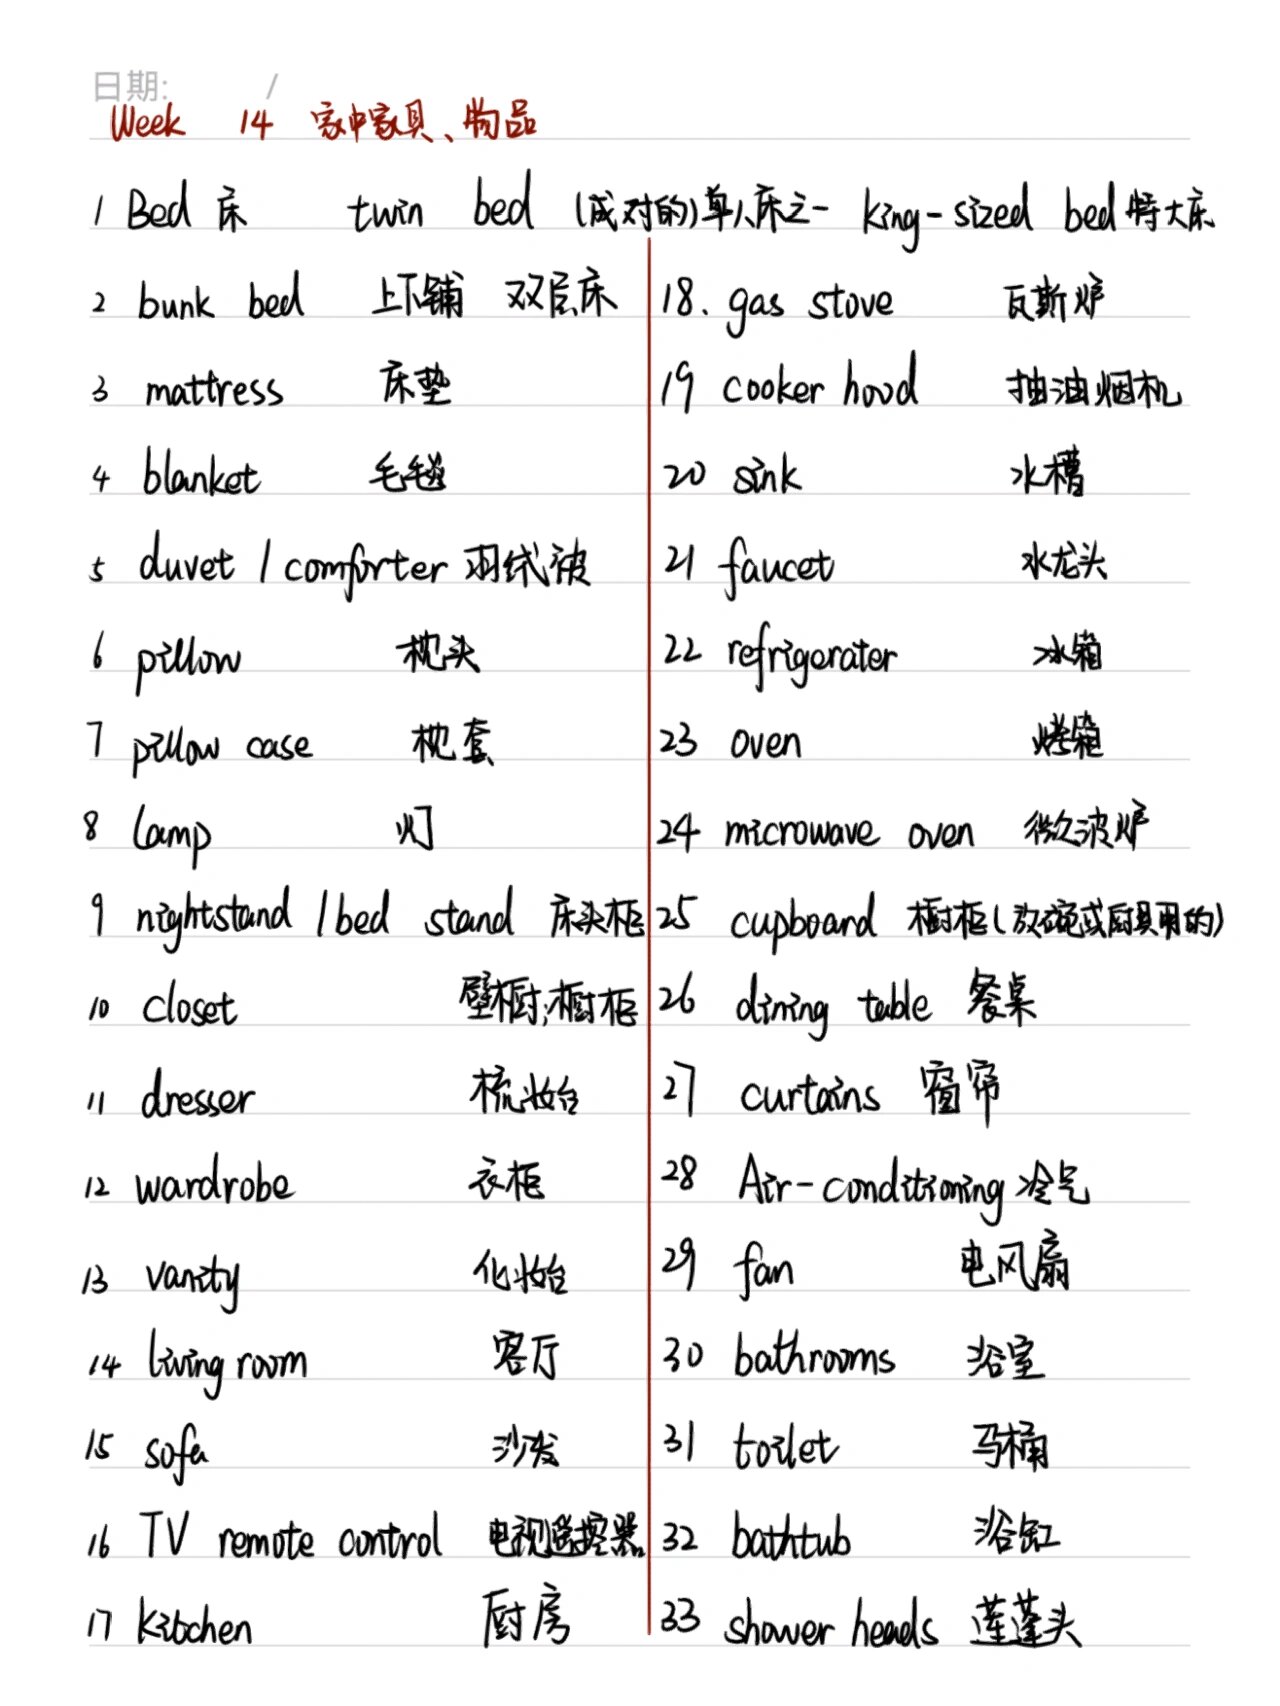 日期: /
Week 14 家中家具、物品
1 Bed 床 twin bed (成对的)单人床之一 king-sized bed 特大床
2 bunk bed 上下铺 双层床
3 mattress 床垫
4 blanket 毛毯
5 duvet / comforter 羽绒被
6 pillow 枕头
7 pillow case 枕套
8 lamp 灯
9 nightstand / bed stand 床头柜
10 closet 壁橱;橱柜
11 dresser 梳妆台
12 wardrobe 衣柜
13 vanity 化妆台
14 living room 客厅
15 sofa 沙发
16 TV remote control 电视遥控器
17 kitchen 厨房
18. gas stove 瓦斯炉
19 cooker hood 抽油烟机
20 sink 水槽
21 faucet 水龙头
22 refrigerater 冰箱
23 oven 烤箱
24 microwave oven 微波炉
25 cupboard 橱柜(放碗或厨具用的)
26 dining table 餐桌
27 curtains 窗帘
28 Air-conditioning 冷气
29 fan 电风扇
30 bathrooms 浴室
31 toilet 马桶
32 bathtub 浴缸
33 shower heads 莲蓬头